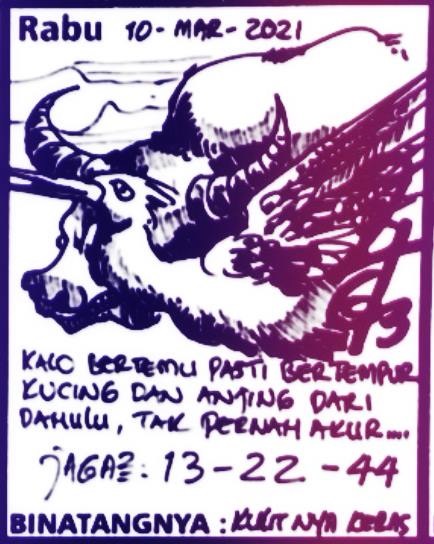 Rabu 10-MAR-2021
KALO BERTEMU PASTI BERTEMPUR
KUCING DAN ANJING DARI
DAHULU, TAK PERNAH AKUR....
JAGA2: 13-22-44
BINATANGNYA : KULIT NYA KERAS